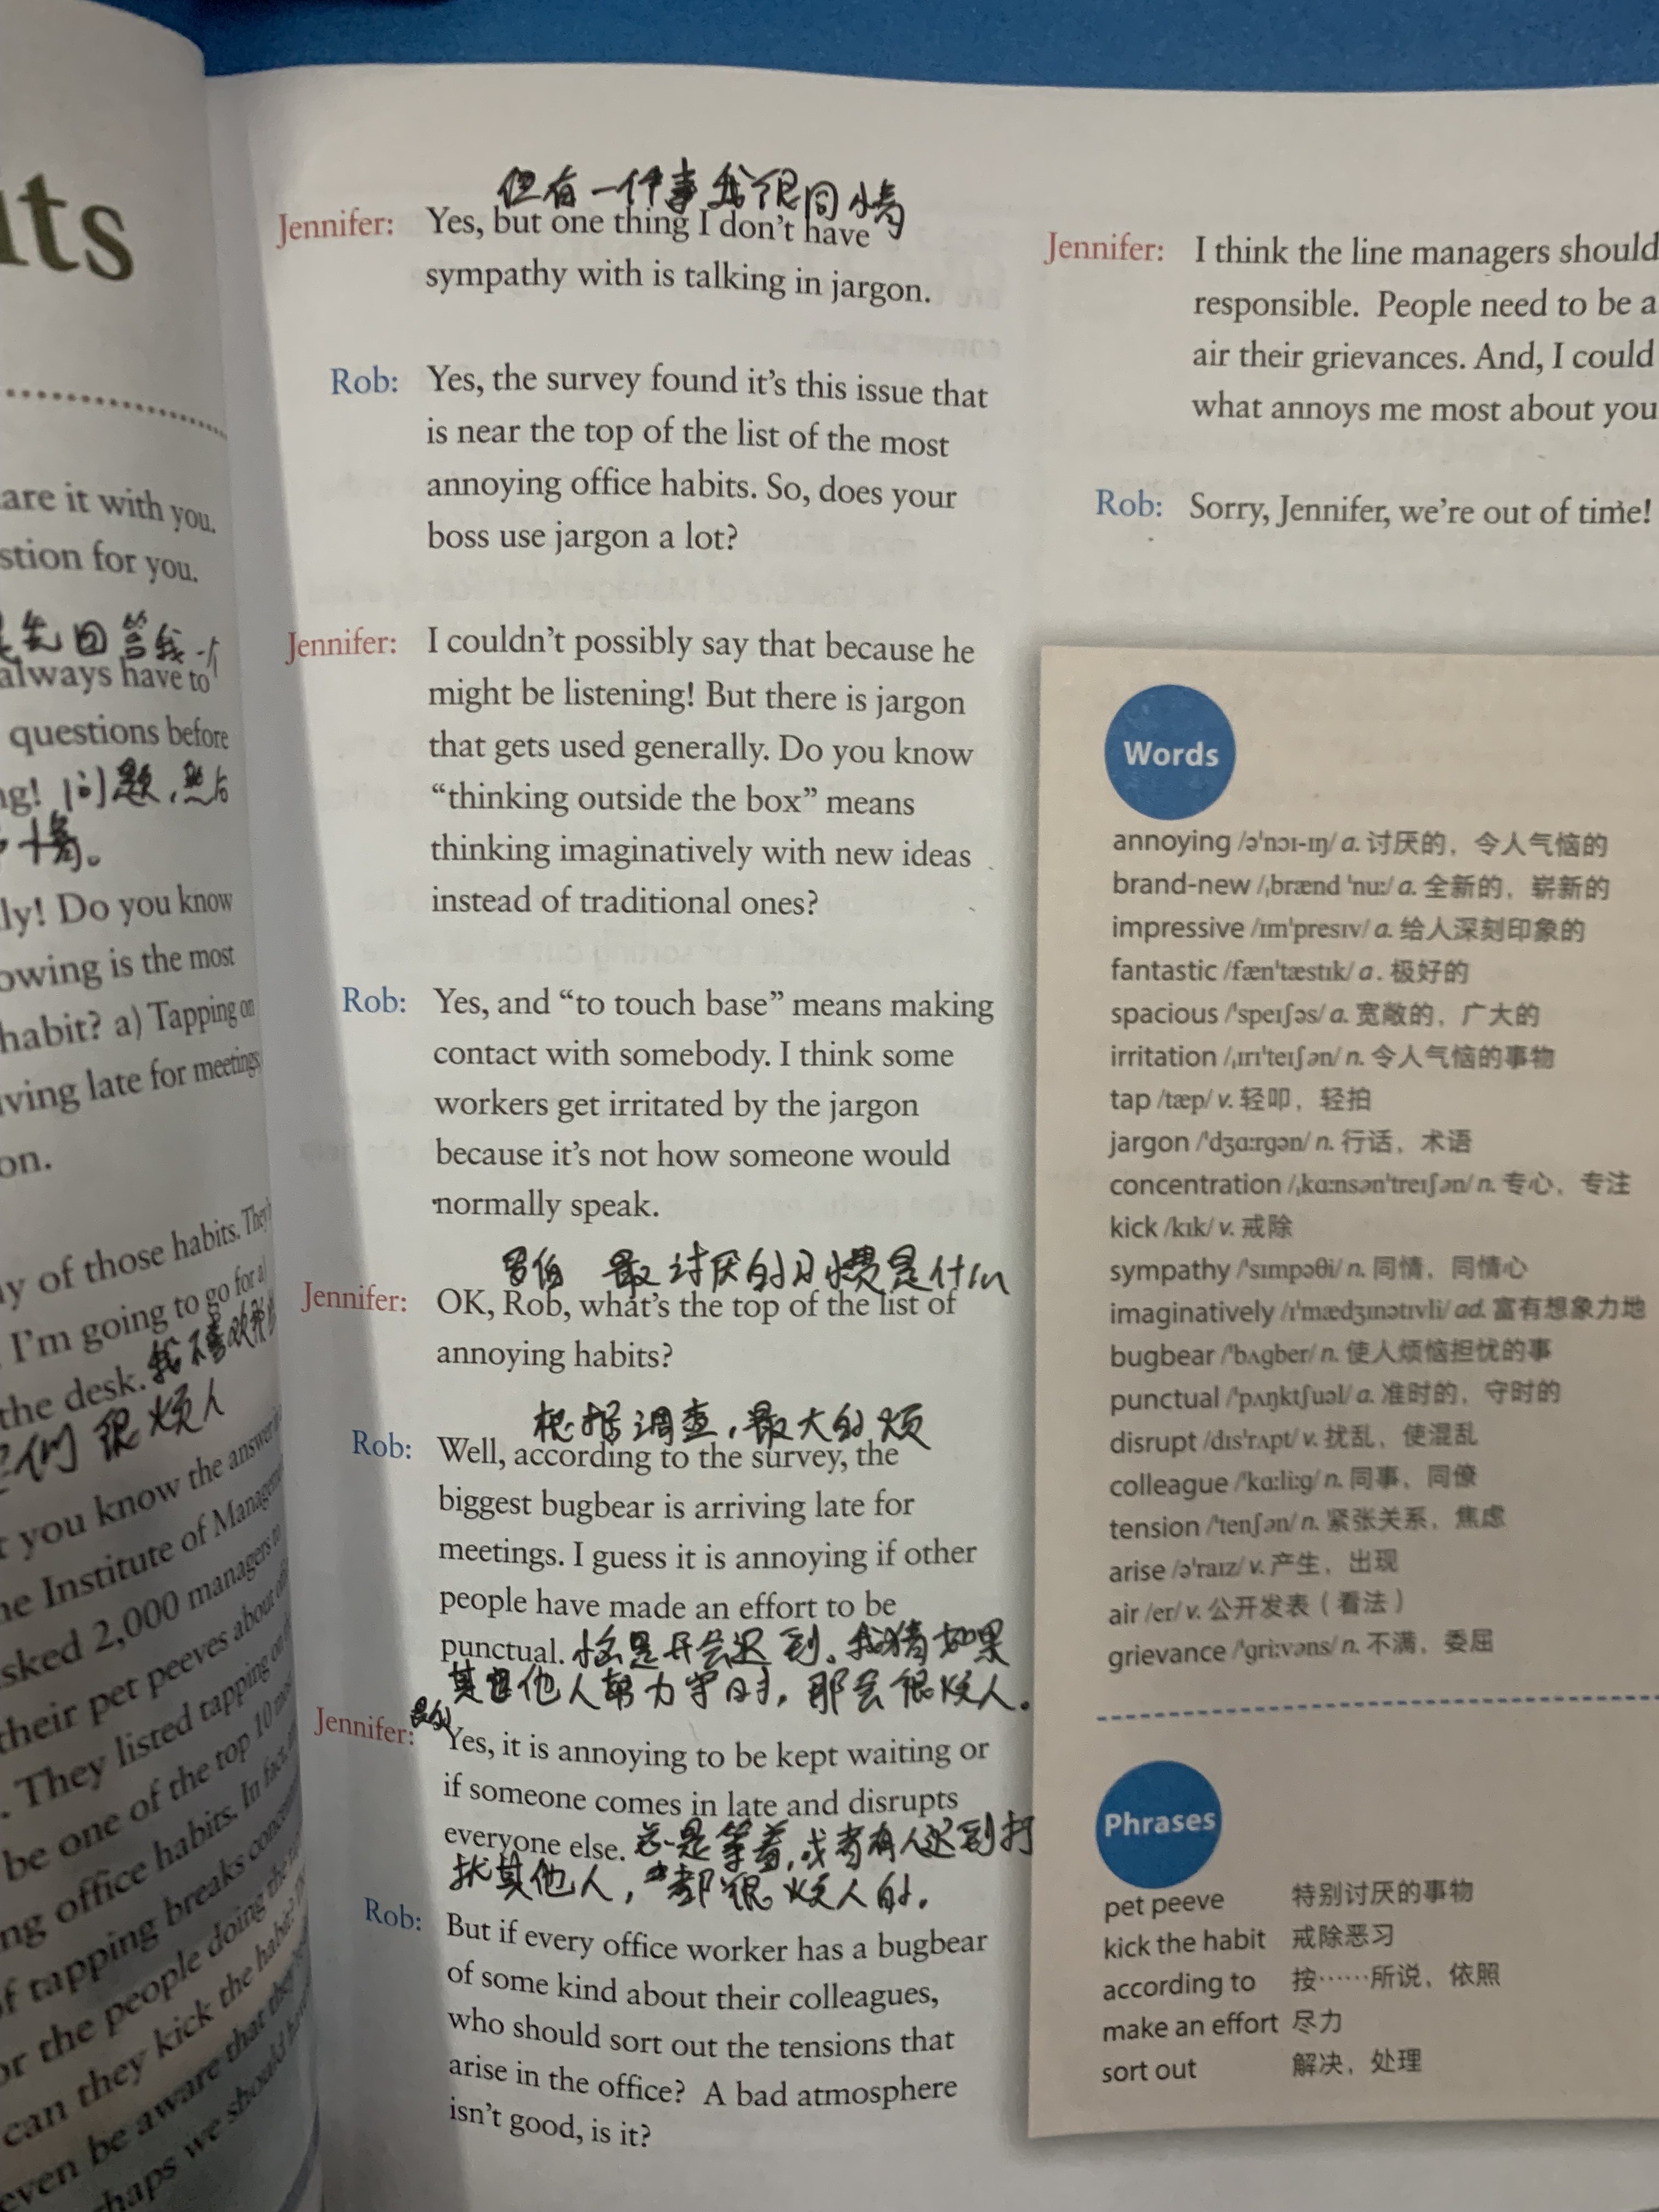 its
are it with you.
stion for you.
先回答我一个
always have to
questions before
ng! 问题,然后
ly! Do you know
owing is the most
habit? a) Tapping on
iving late for meetings
on.
y of those habits. They
I'm going to go for a)
the desk. 我不喜欢
们很烦人
t you know the answer
he Institute of Managem
sked 2,000 managers to
their pet peeves about
. They listed tapping on
be one of the top 10
ng office habits. In fact,
f tapping breaks concent
or the people doing the
can they kick the habit?
even be aware that they
haps we should have
但有一件事我很同情
Jennifer: Yes, but one thing I don't have
sympathy with is talking in jargon.
Rob: Yes, the survey found it's this issue that
is near the top of the list of the most
annoying office habits. So, does your
boss use jargon a lot?
Jennifer: I couldn't possibly say that because he
might be listening! But there is jargon
that gets used generally. Do you know
“thinking outside the box” means
thinking imaginatively with new ideas
instead of traditional ones?
Rob: Yes, and “to touch base” means making
contact with somebody. I think some
workers get irritated by the jargon
because it's not how someone would
normally speak.
罗伯 最讨厌的习惯是什么
Jennifer: OK, Rob, what's the top of the list of
annoying habits?
根据调查,最大的烦
Rob: Well, according to the survey, the
biggest bugbear is arriving late for
meetings. I guess it is annoying if other
people have made an effort to be
punctual. 恼是开会迟到。我猜如果
其他人努力守时,那会很烦人。
Jennifer: Yes, it is annoying to be kept waiting or
if someone comes in late and disrupts
everyone else. 总是等着,或者有人迟到打
扰其他人,都很烦人的.
Rob: But if every office worker has a bugbear
of some kind about their colleagues,
who should sort out the tensions that
arise in the office? A bad atmosphere
isn't good, is it?
Jennifer: I think the line managers should
responsible. People need to be a
air their grievances. And, I could
what annoys me most about you
Rob: Sorry, Jennifer, we're out of time!
Words
annoying /ə'nɔɪ-ɪŋ/ a. 讨厌的，令人气恼的
brand-new /ˌbrænd 'nuː/ a. 全新的，崭新的
impressive /ɪm'presɪv/ a. 给人深刻印象的
fantastic /fæn'tæstɪk/ a. 极好的
spacious /'speɪʃəs/ a. 宽敞的，广大的
irritation /ˌɪrɪ'teɪʃən/ n. 令人气恼的事物
tap /tæp/ v. 轻叩，轻拍
jargon /'dʒɑːrgən/ n. 行话，术语
concentration /ˌkɑːnsən'treɪʃən/ n. 专心，专注
kick /kɪk/ v. 戒除
sympathy /'sɪmpəθi/ n. 同情，同情心
imaginatively /ɪ'mædʒɪnətɪvli/ ad. 富有想象力地
bugbear /'bʌgber/ n. 使人烦恼担忧的事
punctual /'pʌŋktʃuəl/ a. 准时的，守时的
disrupt /dɪs'rʌpt/ v. 扰乱，使混乱
colleague /'kɑːliːg/ n. 同事，同僚
tension /'tenʃən/ n. 紧张关系，焦虑
arise /ə'raɪz/ v. 产生，出现
air /er/ v. 公开发表（看法）
grievance /'griːvəns/ n. 不满，委屈
Phrases
pet peeve 特别讨厌的事物
kick the habit 戒除恶习
according to 按……所说，依照
make an effort 尽力
sort out 解决，处理